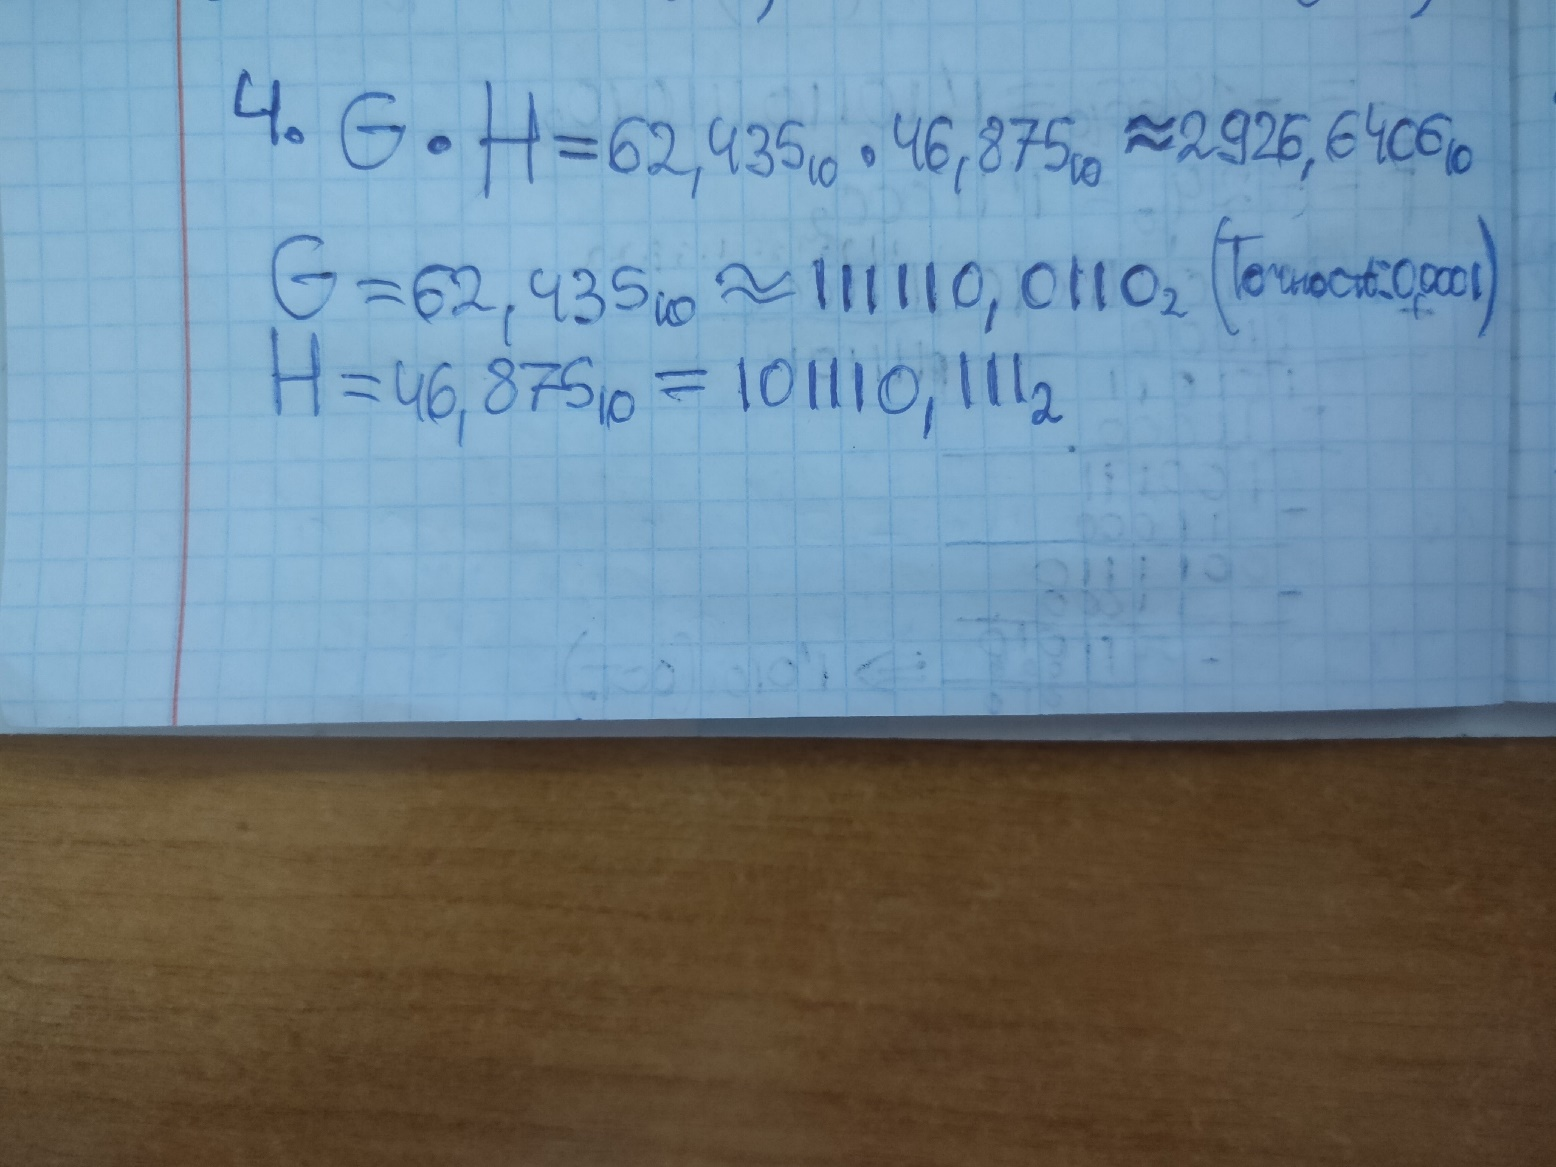 4. G · H = 62,435₁₀ · 46,875₁₀ ≈ 2926,6406₁₀
G = 62,435₁₀ ≈ 111110,0110₂ (Точность: 0,0001)
H = 46,875₁₀ = 101110,111₂